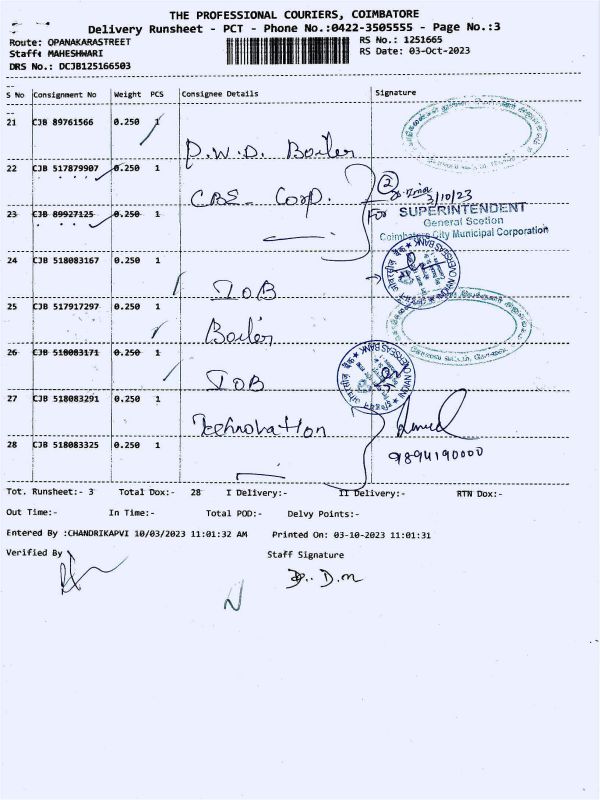 THE PROFESSIONAL COURIERS, COIMBATORE
Delivery Runsheet - PCT - Phone No.:0422-3505555 - Page No.:3
Route: OPANAKARASTREET
RS No.: 1251665
Staff: MAHESHWARI
RS Date: 03-Oct-2023
DRS No.: DCJB125166503
S No Consignment No Weight PCS Consignee Details Signature
21 CJB 89761566 0.250 1
P.W.D. Boiler
22 CJB 517879907 0.250 1
CBE- Corp. 2
3/10/23
23 CJB 89927125 0.250 1
For SUPERINTENDENT
General Scetion
Coimbatore City Municipal Corporation
24 CJB 518083167 0.250 1
IOB
INDIAN OVERSEAS BANK
25 CJB 517917297 0.250 1
Boiler
26 CJB 518083171 0.250 1
IOB
INDIAN OVERSEAS BANK
27 CJB 518083291 0.250 1
Technovation
9894190000
28 CJB 518083325 0.250 1
Tot. Runsheet:- 3 Total Dox:- 28 I Delivery:- II Delivery:- RTN Dox:-
Out Time:- In Time:- Total POD:- Delvy Points:-
Entered By :CHANDRIKAPVI 10/03/2023 11:01:32 AM Printed On: 03-10-2023 11:01:31
Verified By Staff Signature